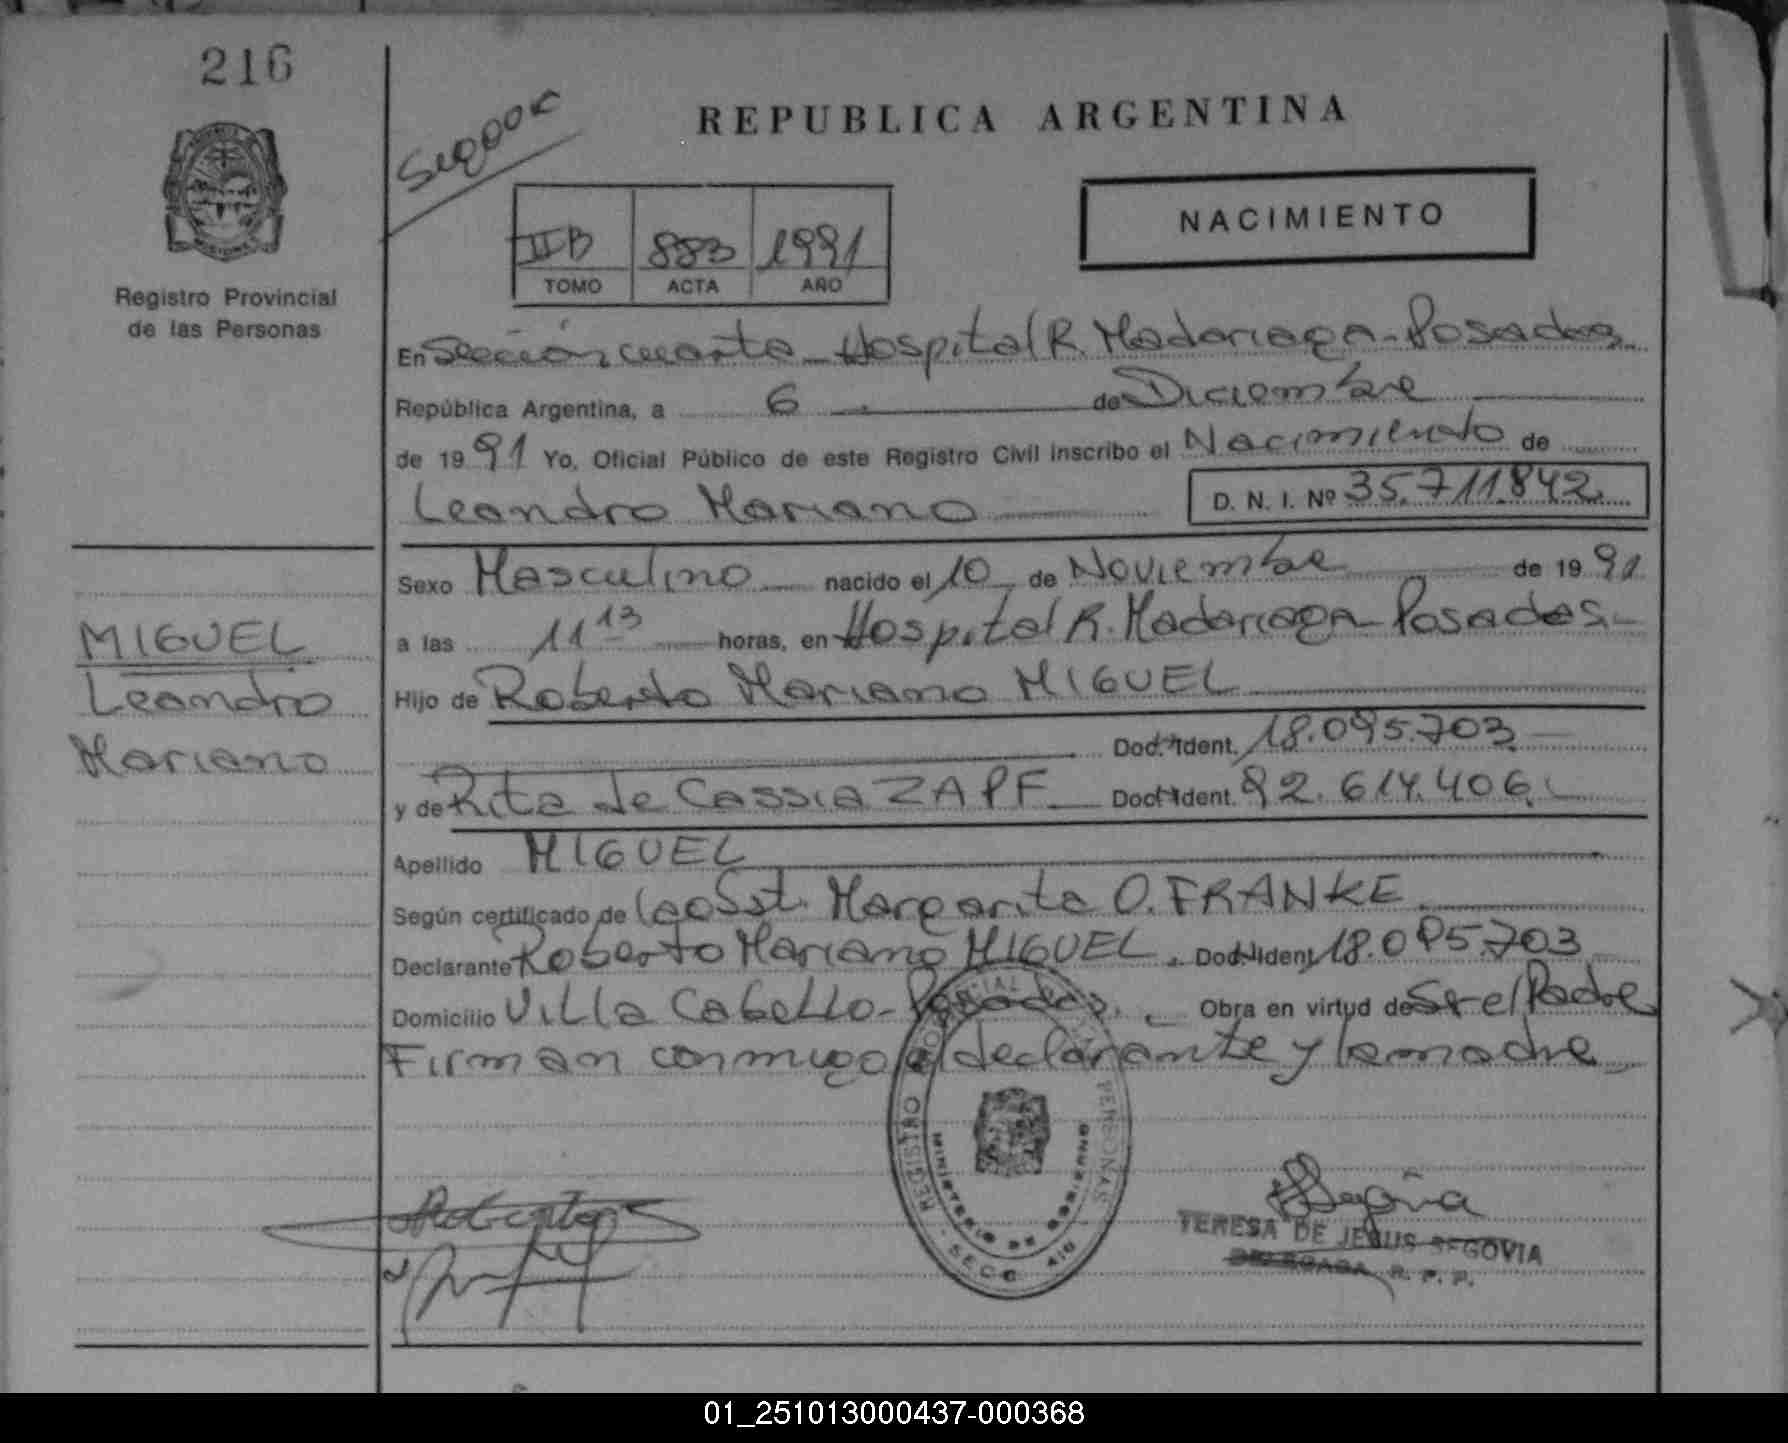 216
REPUBLICA ARGENTINA
NACIMIENTO
IIB 883 1991
TOMO ACTA AÑO
Registro Provincial
de las Personas
En Sección cuarta Hospital R. Madariaga - Posadas
República Argentina, a 6 de Diciembre
de 1991 Yo, Oficial Público de este Registro Civil inscribo el Nacimiento de
Leandro Mariano D. N. I. Nº 35.711.842
Sexo Masculino nacido el 10 de Noviembre de 1991
a las 11 13 horas, en Hospital R. Madariaga - Posadas
MIGUEL
Leandro
Mariano
Hijo de Roberto Mariano MIGUEL
Doc. Ident. 18.095.703
y de Rita de Cassia ZAPF Doc. Ident. 92.614.406
Apellido MIGUEL
Según certificado de la obst. Margarita O. FRANKE
Declarante Roberto Mariano MIGUEL. Doc. Ident. 18.095.703
Domicilio Villa Cabello - Posadas. Obra en virtud de Sr el Padre
Firman conmigo el declarante y la madre
REGISTRO PROVINCIAL PERSONAS
MINISTERIO DE GOBIERNO
TERESA DE JESUS SEGOVIA
DELEGADA R. P. P.
01_251013000437-000368